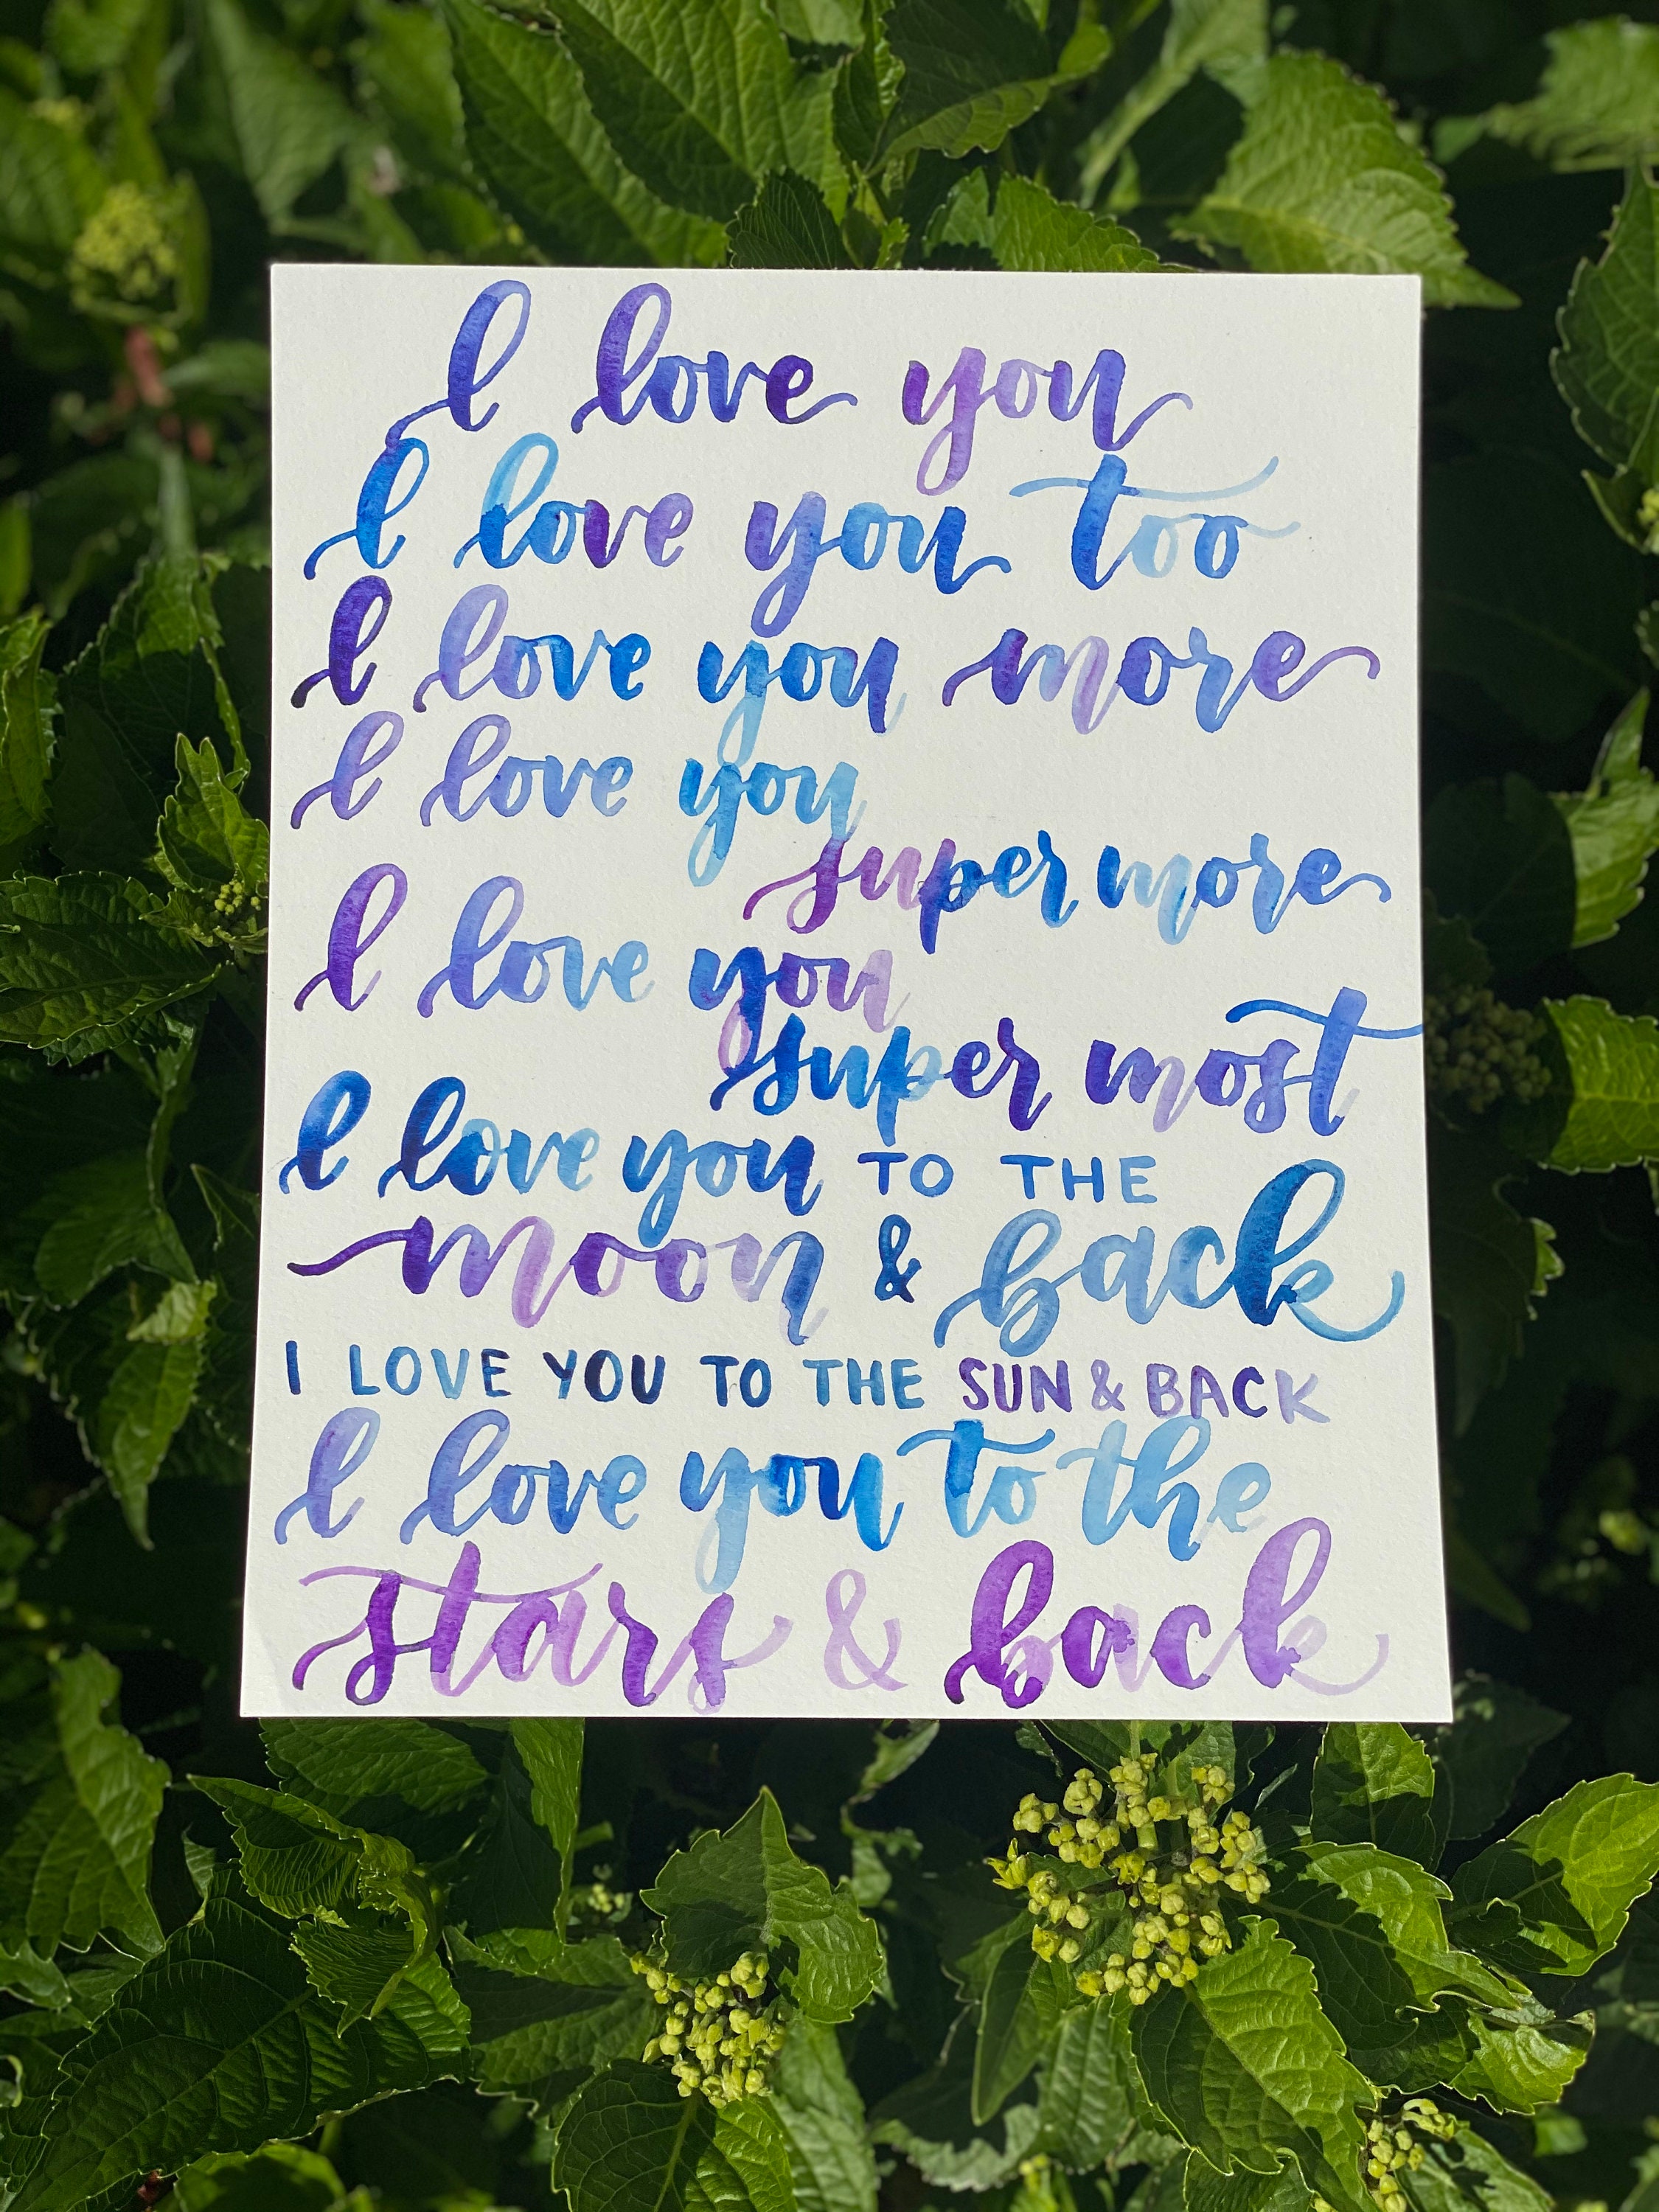 I love you
I love you too
I love you more
I love you
super more
I love you
super most
I love you TO THE
moon & back
I LOVE YOU TO THE SUN & BACK
I love you to the
stars & back